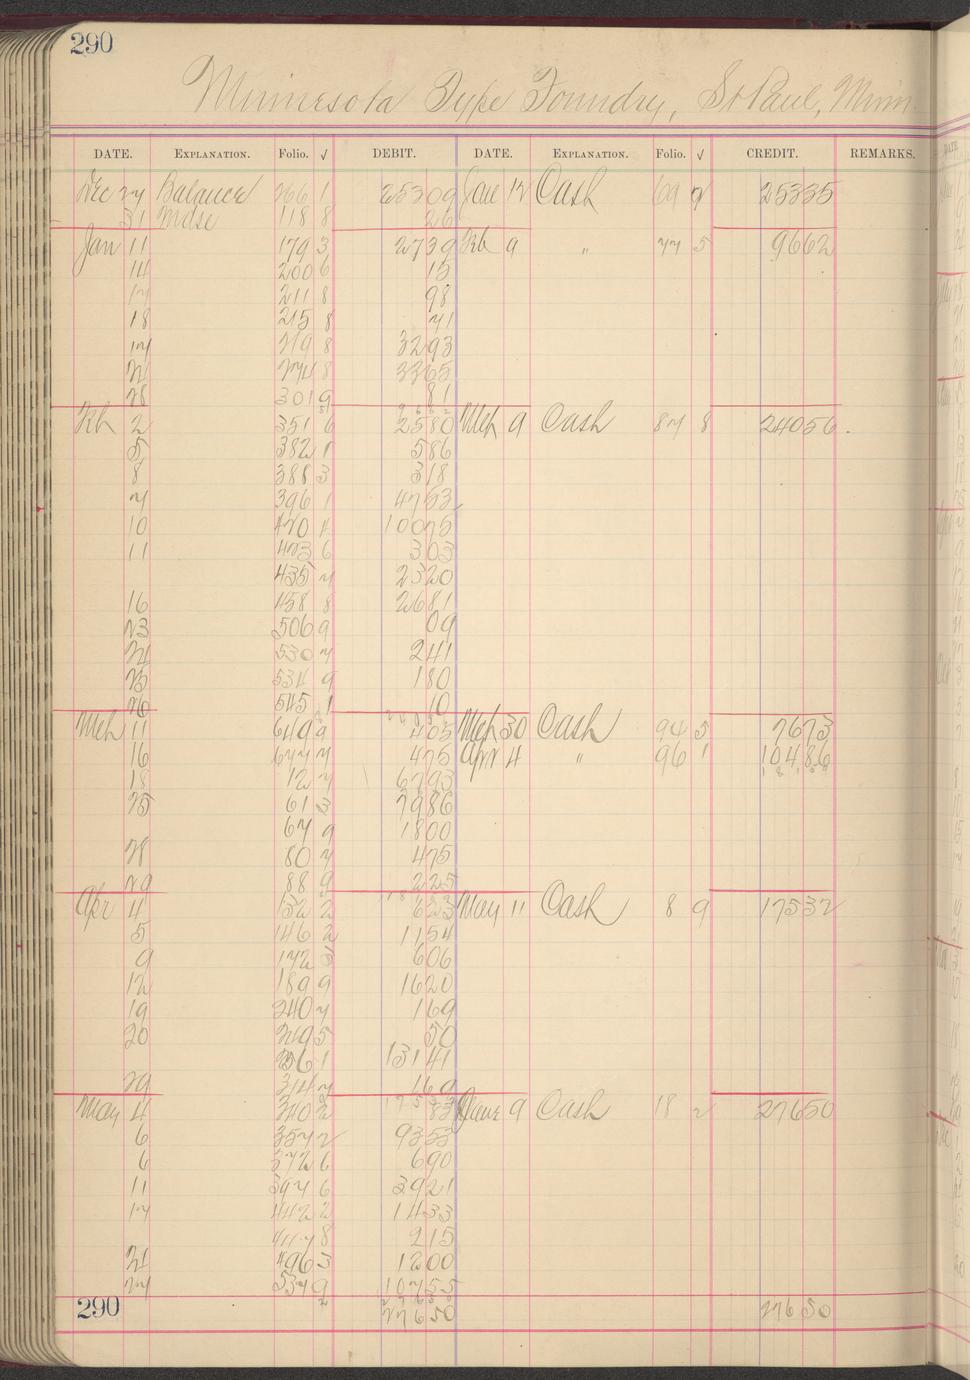 290
Minnesota Type Foundry, St Paul, Minn.
DATE. EXPLANATION. Folio. √ DEBIT. DATE. EXPLANATION. Folio. √ CREDIT. REMARKS.
Dec 27 Balance 266 1 25309 Jan 12 Cash 69 9 25335
31 Mdse 118 8 26
Jan 11 179 3 2739 Feb 9 " 77 5 9662
14 200 6 15
17 211 8 98
18 215 8 71
219 8 3293
274 8 3365
28 301 9 81
Feb 2 351 6 2580 Mch 9 Cash 87 8 24056
5 382 1 586
8 388 3 318
396 1 4753
10 420 4 10075
11 423 6 303
435 7 2320
16 458 8 2681
23 506 9 09
24 530 7 241
25 534 9 180
26 545 1 10
Mch 11 649 9 405 Mch 30 Cash 94 5 7673
16 677 7 475 Apr 4 " 96 1 10486
18 12 7 6793
25 61 3 7986
67 9 1800
28 80 7 475
29 88 9 225
Apr 4 132 2 623 May 11 Cash 8 9 17532
5 146 2 1154
9 172 5 606
12 189 9 1620
19 240 7 169
20 249 5 50
256 1 13141
29 314 7 169
May 4 340 2 83 June 9 Cash 18 2 27650
6 357 2 9353
6 372 6 690
11 397 6 3921
17 442 2 1433
447 8 215
21 496 3 1200
27 537 9 10755
290 27650 27650